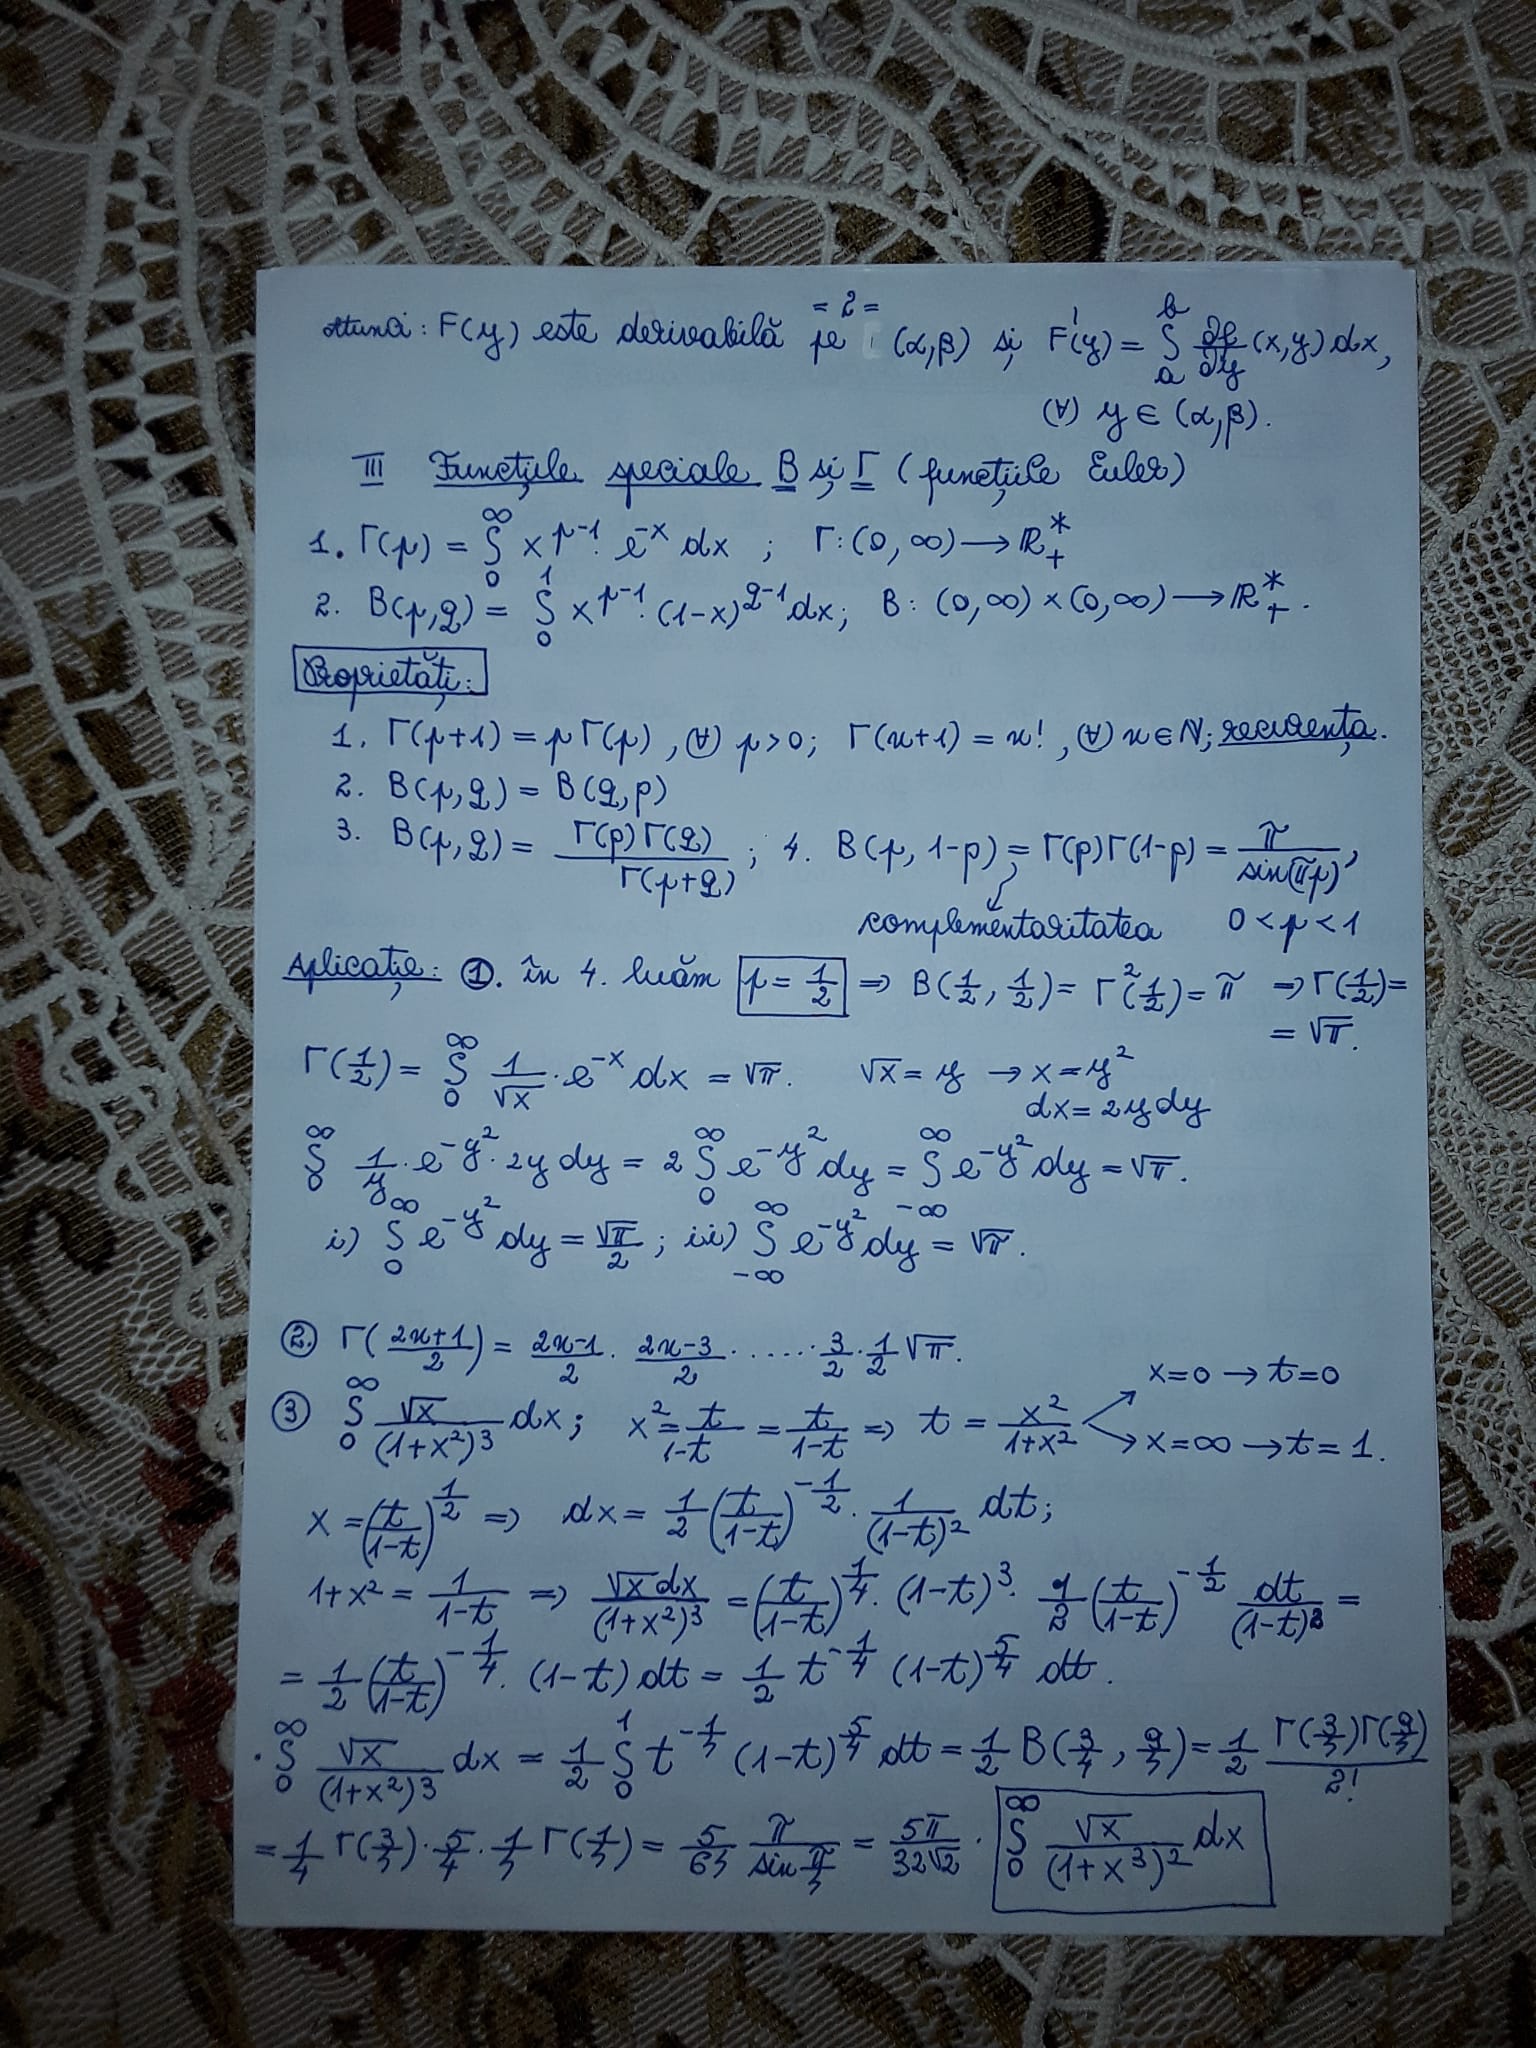 = 2 =
Atunci: F(y) este derivabilă pe (α,β) și F'(y) = ∫_a^b ∂f/∂y (x,y) dx,
(∀) y ∈ (α,β).
III Funcțiile speciale B și Γ (funcțiile Euler)
1. Γ(p) = ∫_0^∞ x^{p-1} · e^{-x} dx ; Γ: (0,∞) → ℝ_+^*
2. B(p,q) = ∫_0^1 x^{p-1} · (1-x)^{q-1} dx; B: (0,∞) × (0,∞) → ℝ_+^*.
Proprietăți:
1. Γ(p+1) = p Γ(p), (∀) p > 0; Γ(n+1) = n!, (∀) n ∈ ℕ; recurența.
2. B(p,q) = B(q,p)
3. B(p,q) = Γ(p)Γ(q)/Γ(p+q) ; 4. B(p, 1-p) = Γ(p)Γ(1-p) = π/sin(πp),
complementaritatea 0 < p < 1
Aplicație: ①. în 4. luăm p = 1/2 ⇒ B(1/2, 1/2) = Γ²(1/2) = π ⇒ Γ(1/2) =
= √π.
Γ(1/2) = ∫_0^∞ 1/√x · e^{-x} dx = √π. √x = y → x = y²
dx = 2y dy
∫_0^∞ 1/y · e^{-y²} · 2y dy = 2 ∫_0^∞ e^{-y²} dy = ∫_{-∞}^∞ e^{-y²} dy = √π.
i) ∫_0^∞ e^{-y²} dy = √π/2 ; ii) ∫_{-∞}^∞ e^{-y²} dy = √π.
②. Γ((2n+1)/2) = (2n-1)/2 · (2n-3)/2 · ..... · 3/2 · 1/2 √π.
x=0 → t=0
③ ∫_0^∞ √x/(1+x²)³ dx; x² = t/(1-t) = t/(1-t) ⇒ t = x²/(1+x²)
x=∞ → t=1.
x = (t/(1-t))^{1/2} ⇒ dx = 1/2 (t/(1-t))^{-1/2} · 1/(1-t)² dt;
1+x² = 1/(1-t) ⇒ √x dx/(1+x²)³ = (t/(1-t))^{1/4} · (1-t)³ · 1/2 (t/(1-t))^{-1/2} dt/(1-t)² =
= 1/2 (t/(1-t))^{-1/4} · (1-t) dt = 1/2 t^{-1/4} (1-t)^{5/4} dt.
· ∫_0^∞ √x/(1+x²)³ dx = 1/2 ∫_0^1 t^{-1/4} (1-t)^{5/4} dt = 1/2 B(3/4, 9/4) = 1/2 Γ(3/4)Γ(9/4)/2!
= 1/4 Γ(3/4) · 5/4 · 1/4 Γ(1/4) = 5/64 π/sin π/4 = 5π/32√2 . ∫_0^∞ √x/(1+x³)² dx